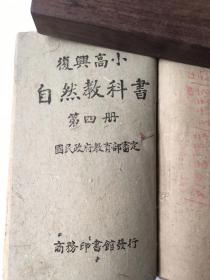 復興高小
自然教科書
第四册
國民政府教育部審定
商務印書館發行